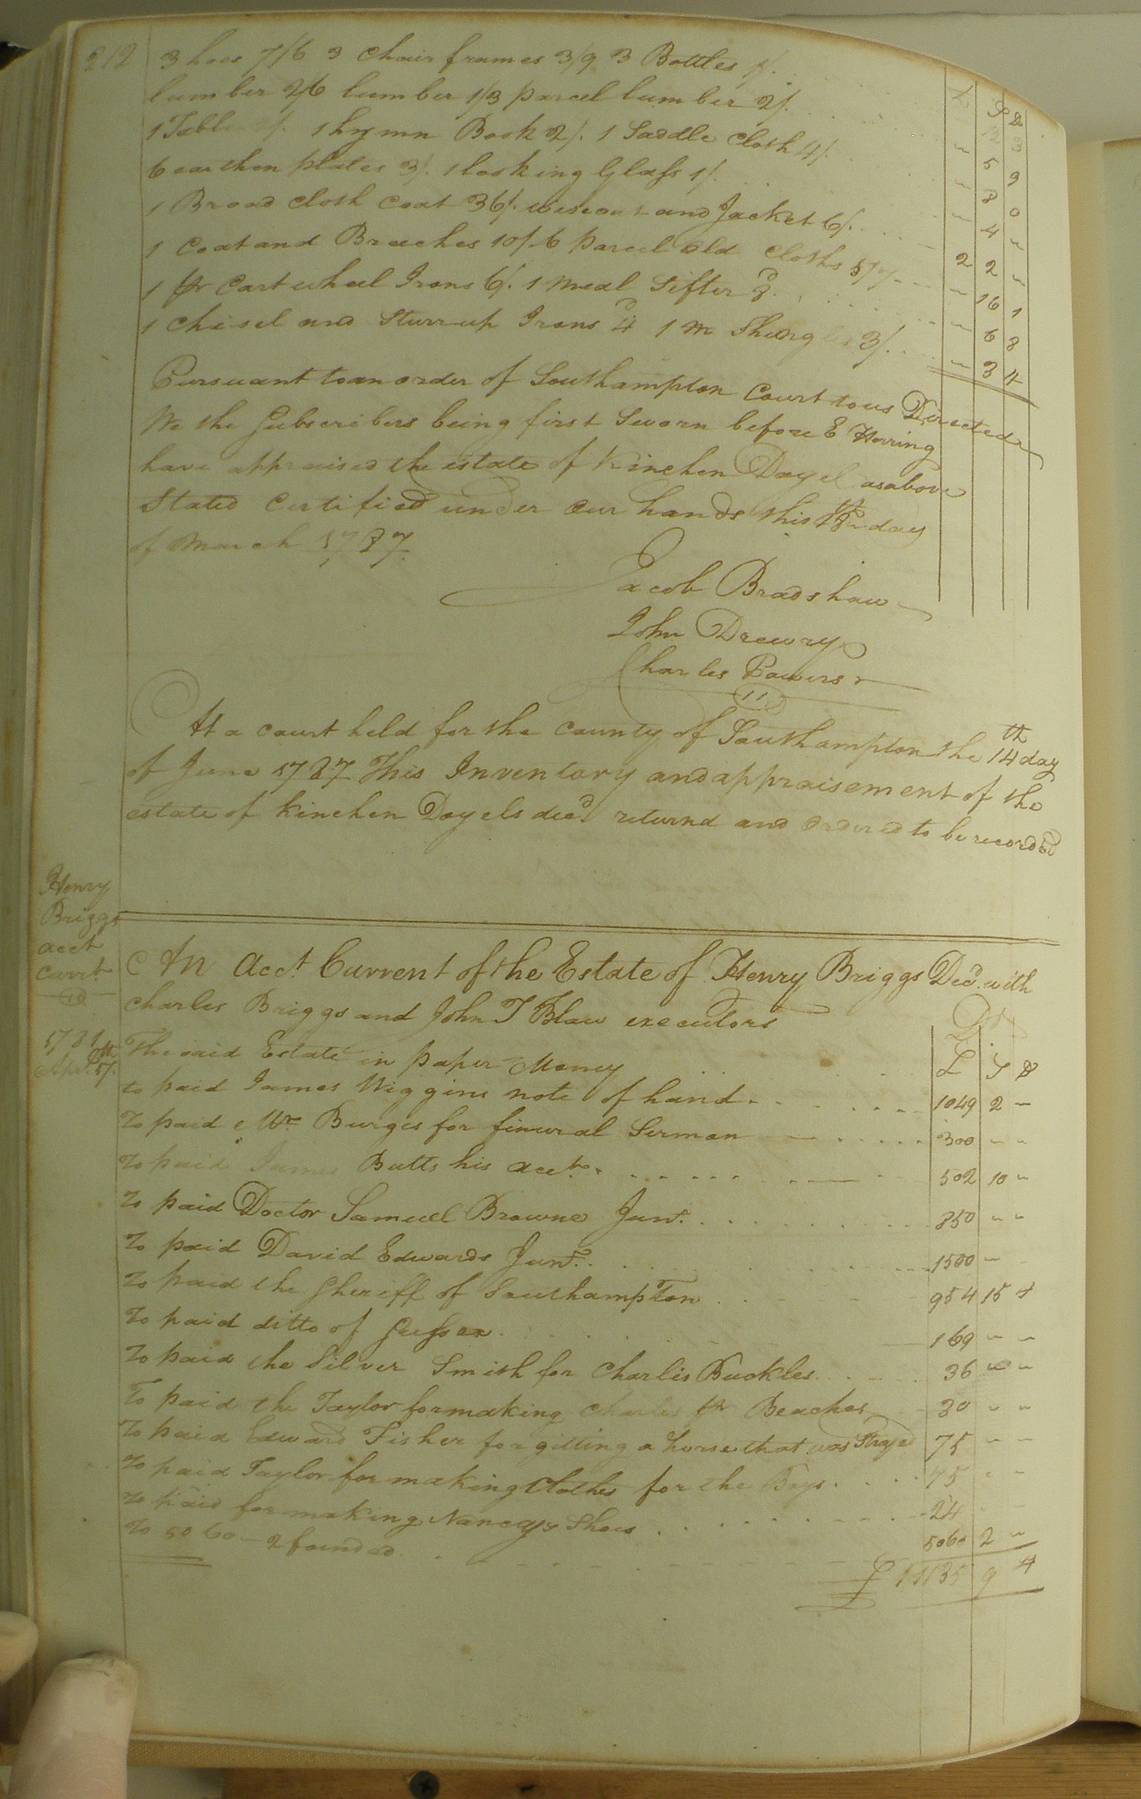 212
3 hoes 7/6 3 Chair frames 3/9 3 Bottles 1/. 12 3
lumber 2/6 lumber 1/3 parcel lumber 2/. " 5 9
1 Table /. 1 hymn Book 2/. 1 Saddle Cloth 4/. " 8 0
6 earthen plates 3/. 1 looking Glass 1/. " 4 "
1 Broad Cloth Coat 36/. wescout and Jacket 6/. 2 2 "
1 Coat and Breaches 10/6 parcel old Cloths 5/7 " 16 1
1 pr Cart wheel Irons 6/. 1 meal Sifter 8d " 6 8
1 Chisel and Sturrup Irons 4d 1 m Shingles 3/. " 3 4
£ S D
Pursuant to an order of Southampton Court to us Directed
We the Subscribers being first Sworn before E Herring
have appraised the estate of Kinchen Dayel as above
Stated Certified under our hands this day
of March 1787.
Jacob Bradshaw
John Drewry
Charles Powers
At a court held for the County of Southampton the 14th day
of June 1787 This Inventory and appraisement of the
estate of Kinchen Dayels decd returnd and ordered to be recorded
Henry
Briggs
acct
Currt
An Acct. Current of the Estate of Henry Briggs Decd. with
Charles Briggs and John T Blow executors
Dr
1781 The said Estate in paper Money £ S D
Apr. 5th. to paid James Wiggins note of hand 1049 2 "
To paid Mr Burges for funural Sermon 300 " "
To paid James Butts his acct. 502 10 "
To paid Doctor Samuel Browne Junr. 850 " "
To paid David Edwards Junr. 1500 "
To paid the Sheriff of Southampton 954 15 4
To paid ditto of Sussex 169 " "
To paid the Silver Smith for Charlis Buckles 36 " "
To paid the Taylor for making Charles pr Beaches 30 " "
To paid Edward Fisher for gitting a horse that was Strayed 75 " "
To paid Taylor for making Clothes for the Boys 75 " "
To paid for making Nancys Shoes 24
To 5060 - 2 founded 5060 2 "
£ 11135 9 4